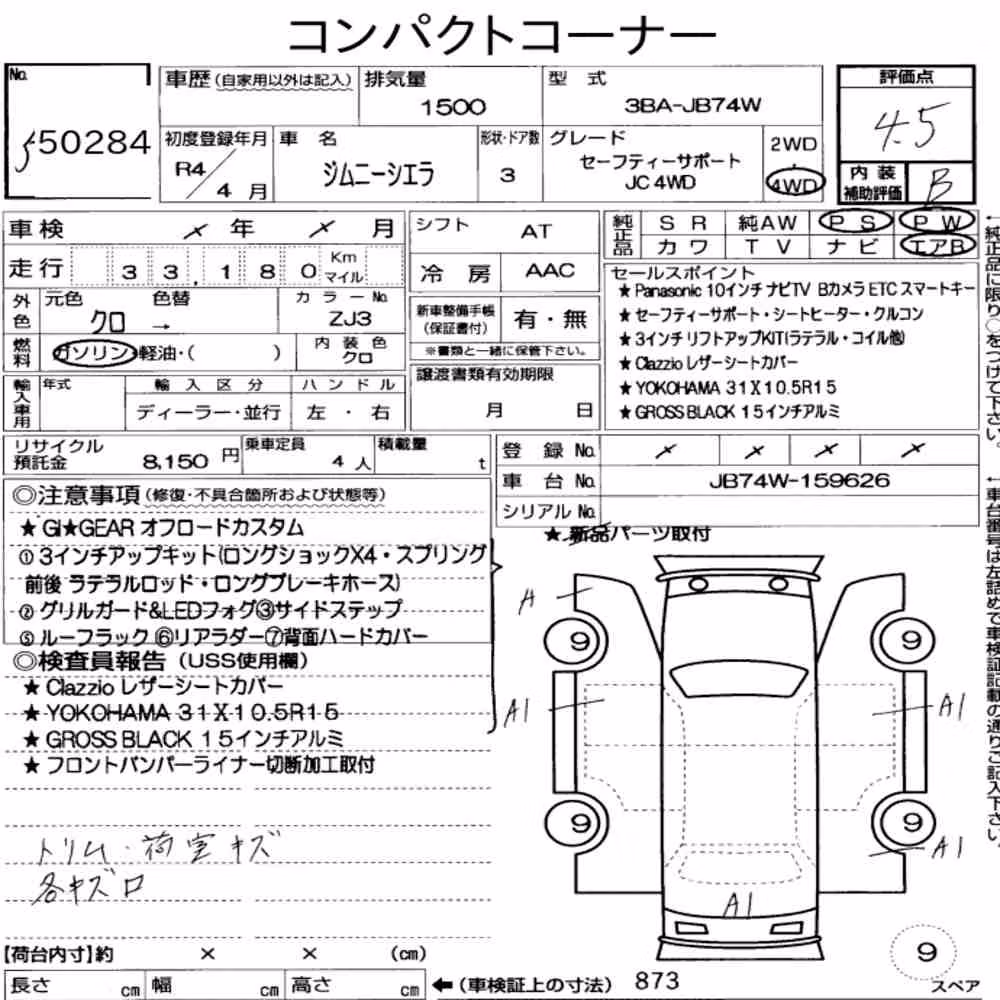 コンパクトコーナー
No. 50284
車歴(自家用以外は記入) 排気量 1500 型式 3BA-JB74W
初度登録年月 R4/4月 車名 ジムニーシエラ 形状・ドア数 3 グレード セーフティーサポート JC 4WD 2WD・4WD
評価点 4.5
内装補助評価 B
車検 × 年 × 月
走行 33,180 Km マイル
外色 元色 クロ → 色替 カラーNo. ZJ3
燃料 ガソリン 軽油・( ) 内装色 クロ
輸入車用 年式 輸入区分 ディーラー・並行 ハンドル 左・右
シフト AT
冷房 AAC
新車整備手帳(保証書付) 有・無
※書類と一緒に保管下さい。
譲渡書類有効期限 月 日
純正品 SR 純AW PS PW
カワ TV ナビ エアB
セールスポイント
★Panasonic 10インチナビTV BカメラETCスマートキー
★セーフティーサポート・シートヒーター・クルコン
★3インチリフトアップKIT(ラテラル・コイル他)
★Clazzioレザーシートカバー
★YOKOHAMA 31X10.5R15
★GROSS BLACK 15インチアルミ
←純正品に限り○をつけて下さい。
リサイクル預託金 8,150円 乗車定員 4人 積載量 t
登録No. × × × ×
車台No. JB74W-159626
シリアルNo.
←車台番号は左詰めで車検証記載の通りご記入下さい。
◎注意事項(修復・不具合箇所および状態等)
★GI★GEAR オフロードカスタム
①3インチアップキット(ロングショックX4・スプリング
前後 ラテラルロッド・ロングブレーキホース)
②グリルガード&LEDフォグ③サイドステップ
⑤ルーフラック⑥リアラダー⑦背面ハードカバー
◎検査員報告(USS使用欄)
★Clazzioレザーシートカバー
★YOKOHAMA 31X10.5R15
★GROSS BLACK 15インチアルミ
★フロントバンパーライナー切断加工取付
トリム・荷室キズ
各キズロ
★新品パーツ取付
A
9 9
A1 A1
9 9
A1
A1
9
スペア
【荷台内寸】約 × × (cm)
長さ cm 幅 cm 高さ cm ←(車検証上の寸法) 873